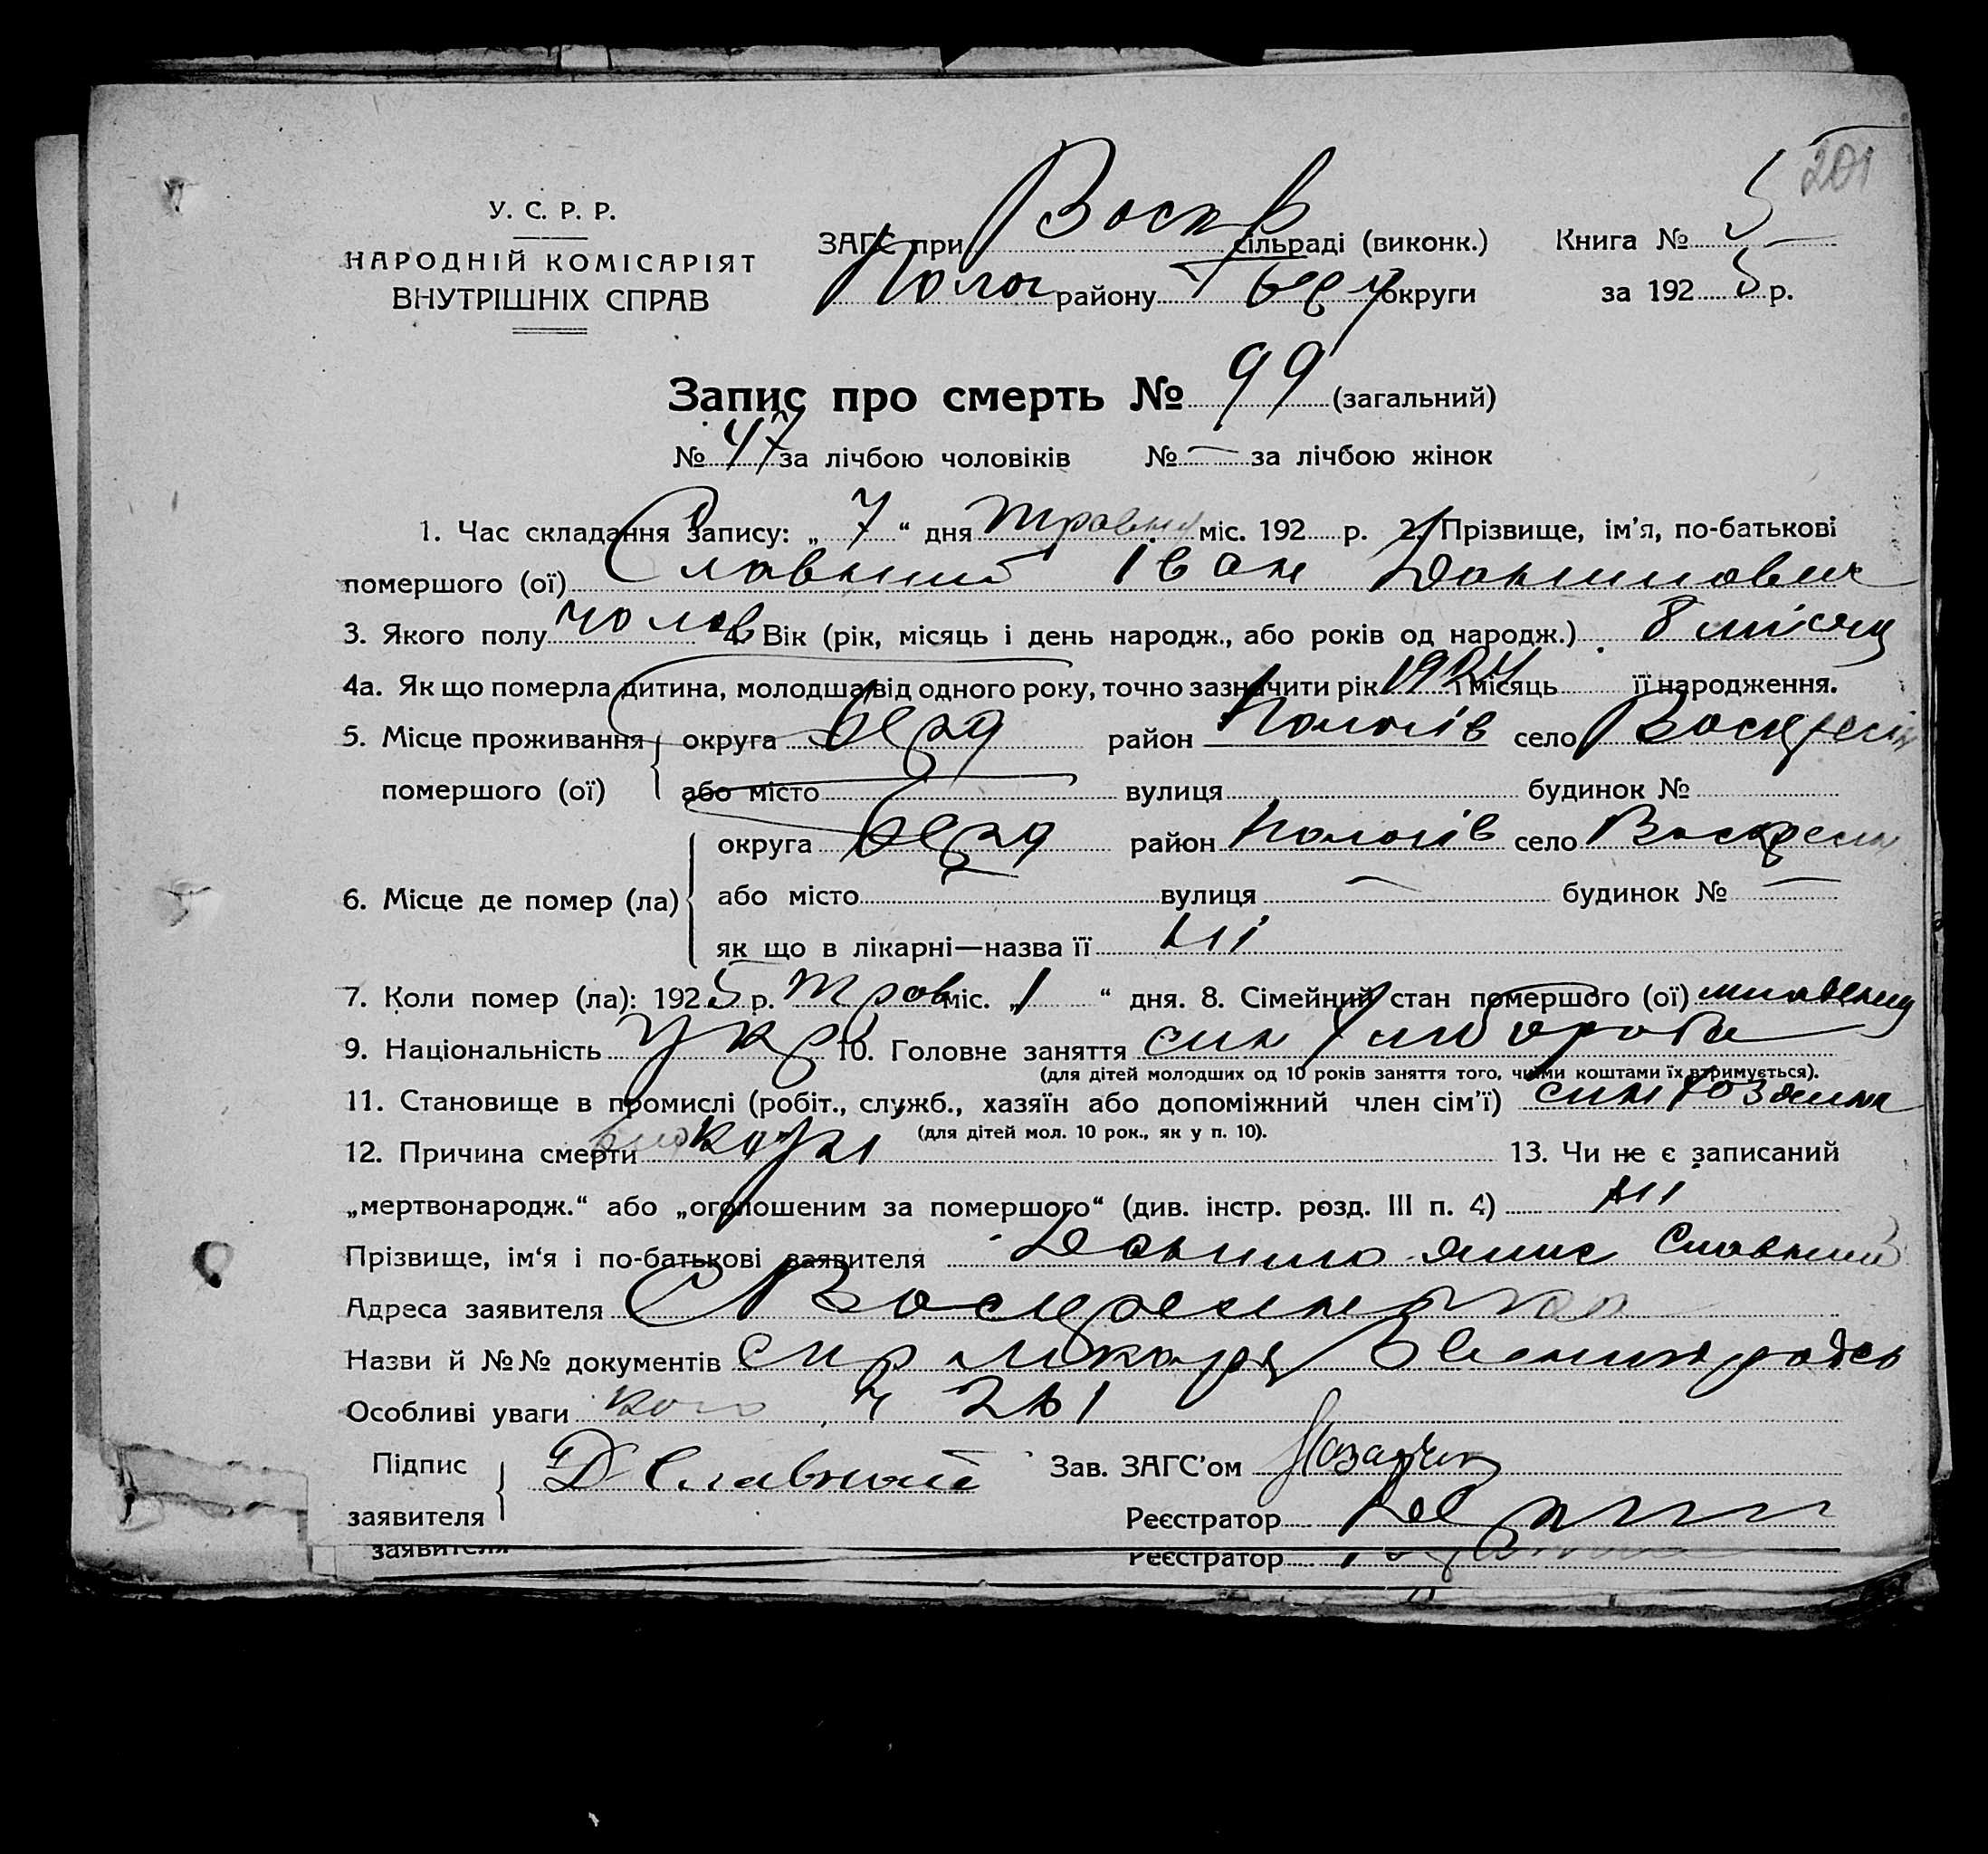 201
У. С. Р. Р.
НАРОДНІЙ КОМІСАРІЯТ
ВНУТРІШНІХ СПРАВ
ЗАГС при Воскр сільраді (виконк.) Книга № 5
Полог району Берд округи за 1925 р.
Запис про смерть № 99 (загальний)
№ 47 за лічбою чоловіків № — за лічбою жінок
1. Час складання запису: „ 7 “ дня травня міс. 192 р. 2. Прізвище, ім’я, по-батькові
помершого (ої) Славний Іван Данилович
3. Якого полу чолов 4. Вік (рік, місяць і день народж., або років од народж.) 8 місяц
4а. Як що померла дитина, молодша від одного року, точно зазначити рік 1924 і місяць її народження.
5. Місце проживання округа Берд район Пологів село Воскресен
помершого (ої) або місто вулиця будинок №
округа Берд район Пологів село Воскресен
6. Місце де помер (ла) або місто вулиця — будинок № —
як що в лікарні—назва її Ні
7. Коли помер (ла): 1925 р. Трав міс. „1 “ дня. 8. Сімейний стан помершого (ої)
9. Національність Укр 10. Головне заняття син Хлібороба
(для дітей молодших од 10 років заняття того, чиїми коштами їх втримується).
11. Становище в промислі (робіт., служб., хазяїн або допоміжний член сім’ї) син Хозяина
(для дітей мол. 10 рок., як у п. 10).
12. Причина смерти 13. Чи не є записаний
„мертвонародж.“ або „оголошеним за помершого“ (див. інстр. розд. III п. 4) Ні
Прізвище, ім‘я і по-батькові заявителя Данило Славний
Адреса заявителя С Воскресенька
Назви й №№ документів лікаря
Особливі уваги
Підпис Д Славний Зав. ЗАГС’ом
заявителя Реєстратор
заявителя Реєстратор